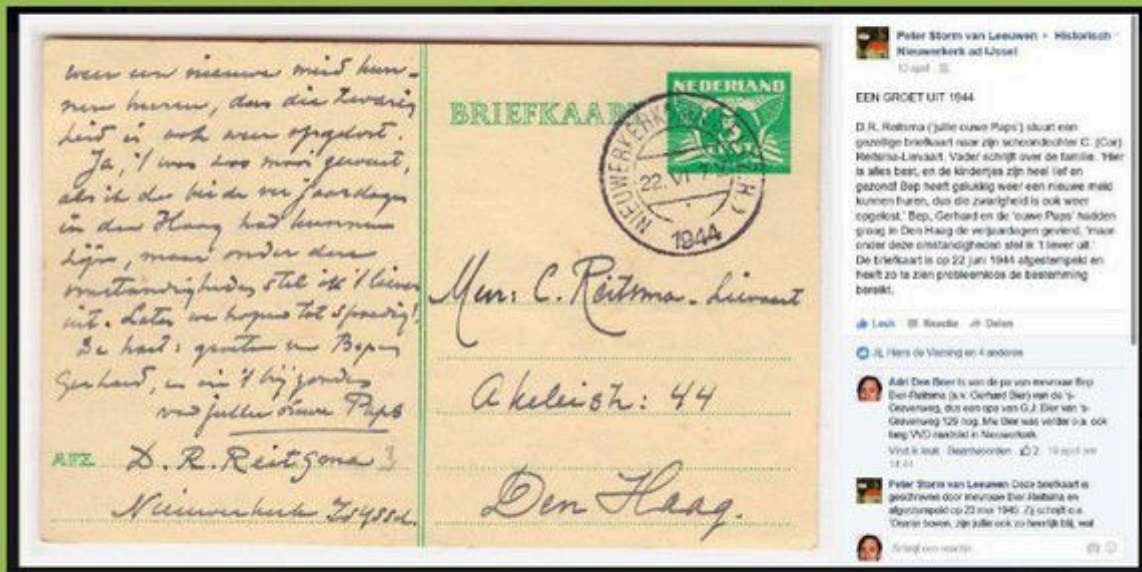 weer een nieuwe meid kun-
nen huren, dus die zwarig
heid is ook weer opgelost.
Ja, 't was zoo mooi geweest,
als ik de beide verjaardagen
in den Haag had kunnen
zijn, maar onder deze
omstandigheden stel ik 't liever
uit. Later we hopen tot spoedig!
De hart: groeten van Bep en
Gerhard, en in 't bijzonder
van jullie ouwe Paps
AFZ. D. R. Reitsma
Nieuwerkerk IJssel.
BRIEFKAART
NEDERLAND
NIEUWERKERK
22. VI
1944
Mevr: C. Reitsma - Lievaart
Akeleistr: 44
Den Haag.
Peter Storm van Leeuwen ▸ Historisch
Nieuwerkerk ad IJssel
april
EEN GROET UIT 1944
D.R. Reitsma ('jullie ouwe Paps') stuurt een
gezellige briefkaart naar zijn schoondochter C. (Cor)
Reitsma-Lievaart. Vader schrijft over de familie. 'Hier
is alles best, en de kindertjes zijn heel lief en
gezond! Bep heeft gelukkig weer een nieuwe meid
kunnen huren, dus die zwarigheid is ook weer
opgelost.' Bep, Gerhard en de 'ouwe Paps' hadden
graag in Den Haag de verjaardagen gevierd, 'maar
onder deze omstandigheden stel ik 't liever uit.'
De briefkaart is op 22 juni 1944 afgestempeld en
heeft zo te zien probleemloos de bestemming
bereikt.
Leuk Reactie Delen
Jij, Hans de Vissing en 4 anderen
Adri Den Boer Is van de pa van mevrouw Bep
Bier-Reitsma (a.v. Gerhard Bier) van de 's-
Gravenweg, dus een opa van G.J. Bier van 's-
Gravenweg 129 nog. Mw Bier was verder o.a. ook
lang VVD raadslid in Nieuwerkerk.
Vind ik leuk · Beantwoorden · 2 · 19 april om
14:44
Peter Storm van Leeuwen Deze briefkaart is
geschreven door mevrouw Bier-Reitsma en
afgestempeld op 23 mei 1945. Zij schrijft o.a.
'Oranje boven, zijn jullie ook zo heerlijk blij, wat
Schrijf een reactie...